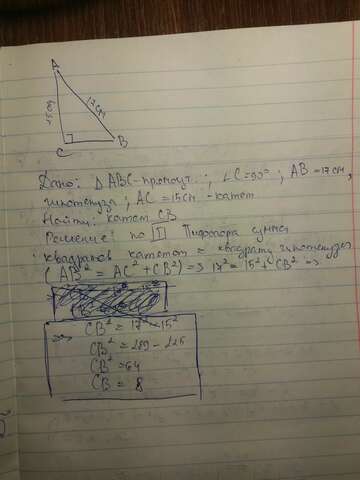 A
15 см
17 см
C
B
Дано: △ ABC - прямоуг.; ∠C = 90°; AB = 17 см,
гипотенуза; AC = 15 см - катет
Найти: катет CB
Решение: по T Пифагора сумма
квадратов катетов = квадрату гипотенузы
(AB² = AC² + CB²) => 17² = 15² + CB² =>
=> CB² = 17² - 15²
CB² = 289 - 225
CB² = 64
CB = 8